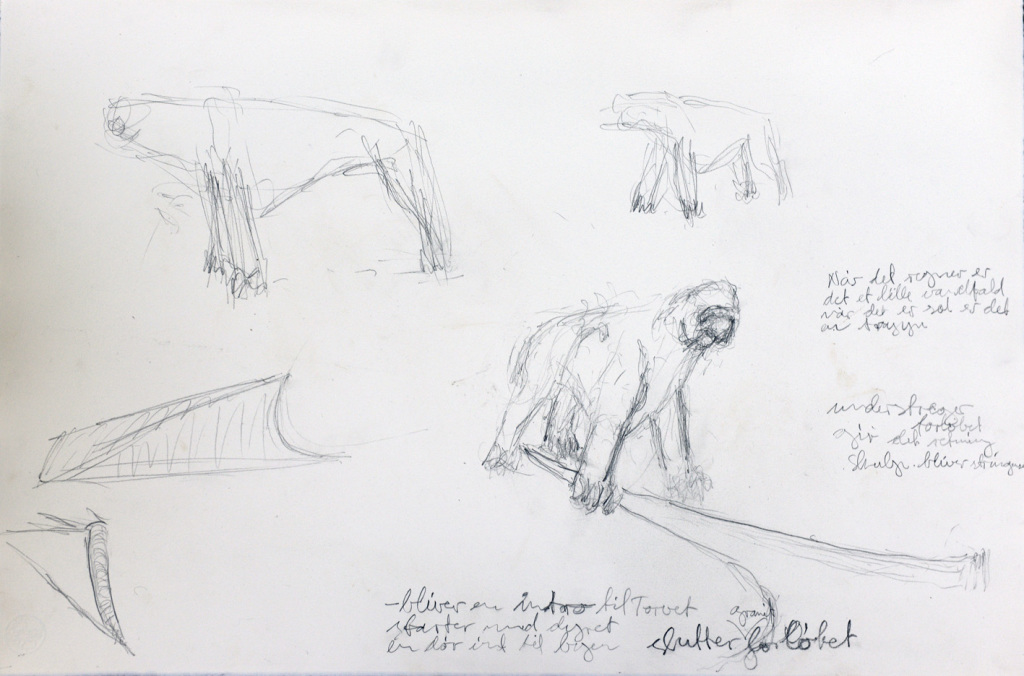 Når det regner er
det et lille vandfald
når det er sol er det
en
understreger
forløbet
gir det retning
Skulp. bliver strammere
- bliver en intro til Torvet
starter med dyret
en dør ind til byen
granit
slutter forløbet